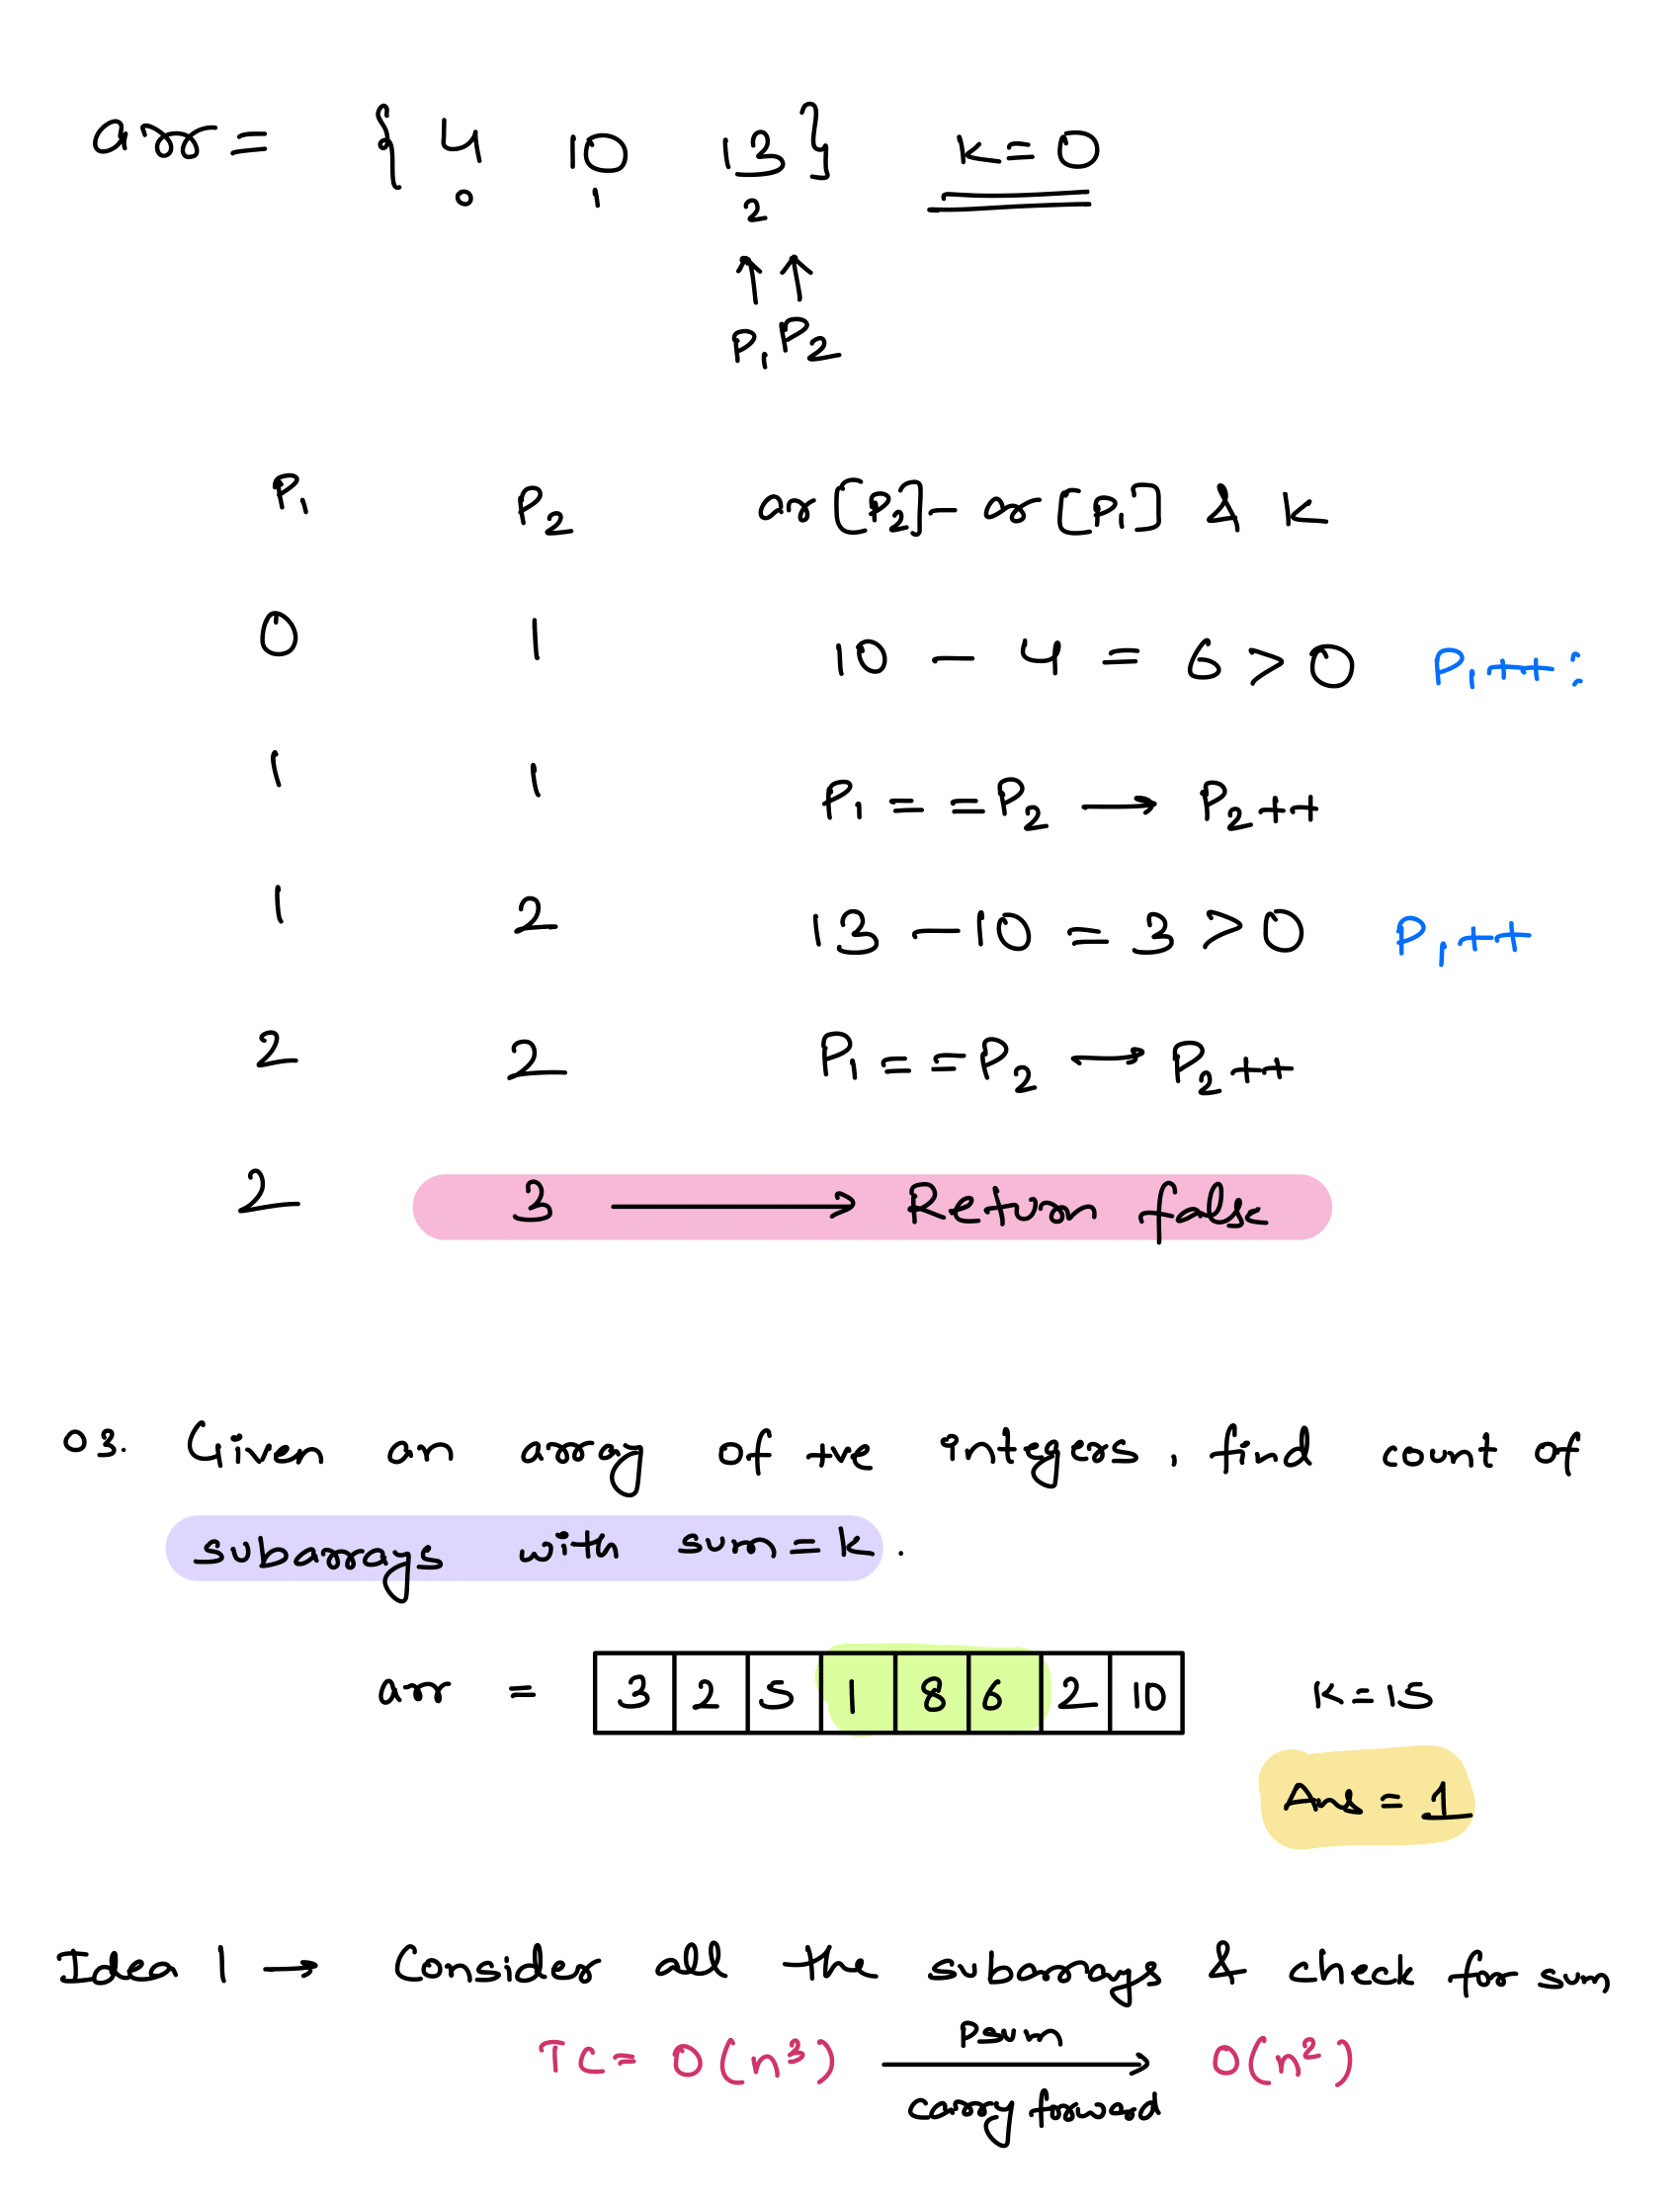 arr = { 4 10 13 } k = 0
0 1 2
↑ ↑
P1 P2
P1 P2 ar [P2] - ar [P1] & k
0 1 10 - 4 = 6 > 0 P1++ :
1 1 P1 = = P2 → P2++
1 2 13 - 10 = 3 > 0 P1++
2 2 P1 = = P2 → P2++
2 3 → Return false
03. Given an array of +ve integers, find count of
subarrays with sum = k .
arr = 3 2 5 1 8 6 2 10 K = 15
Ans = 1
Idea 1 → Consider all the subarrays & check for sum
psum
TC = O(n³) → O(n²)
carry forward